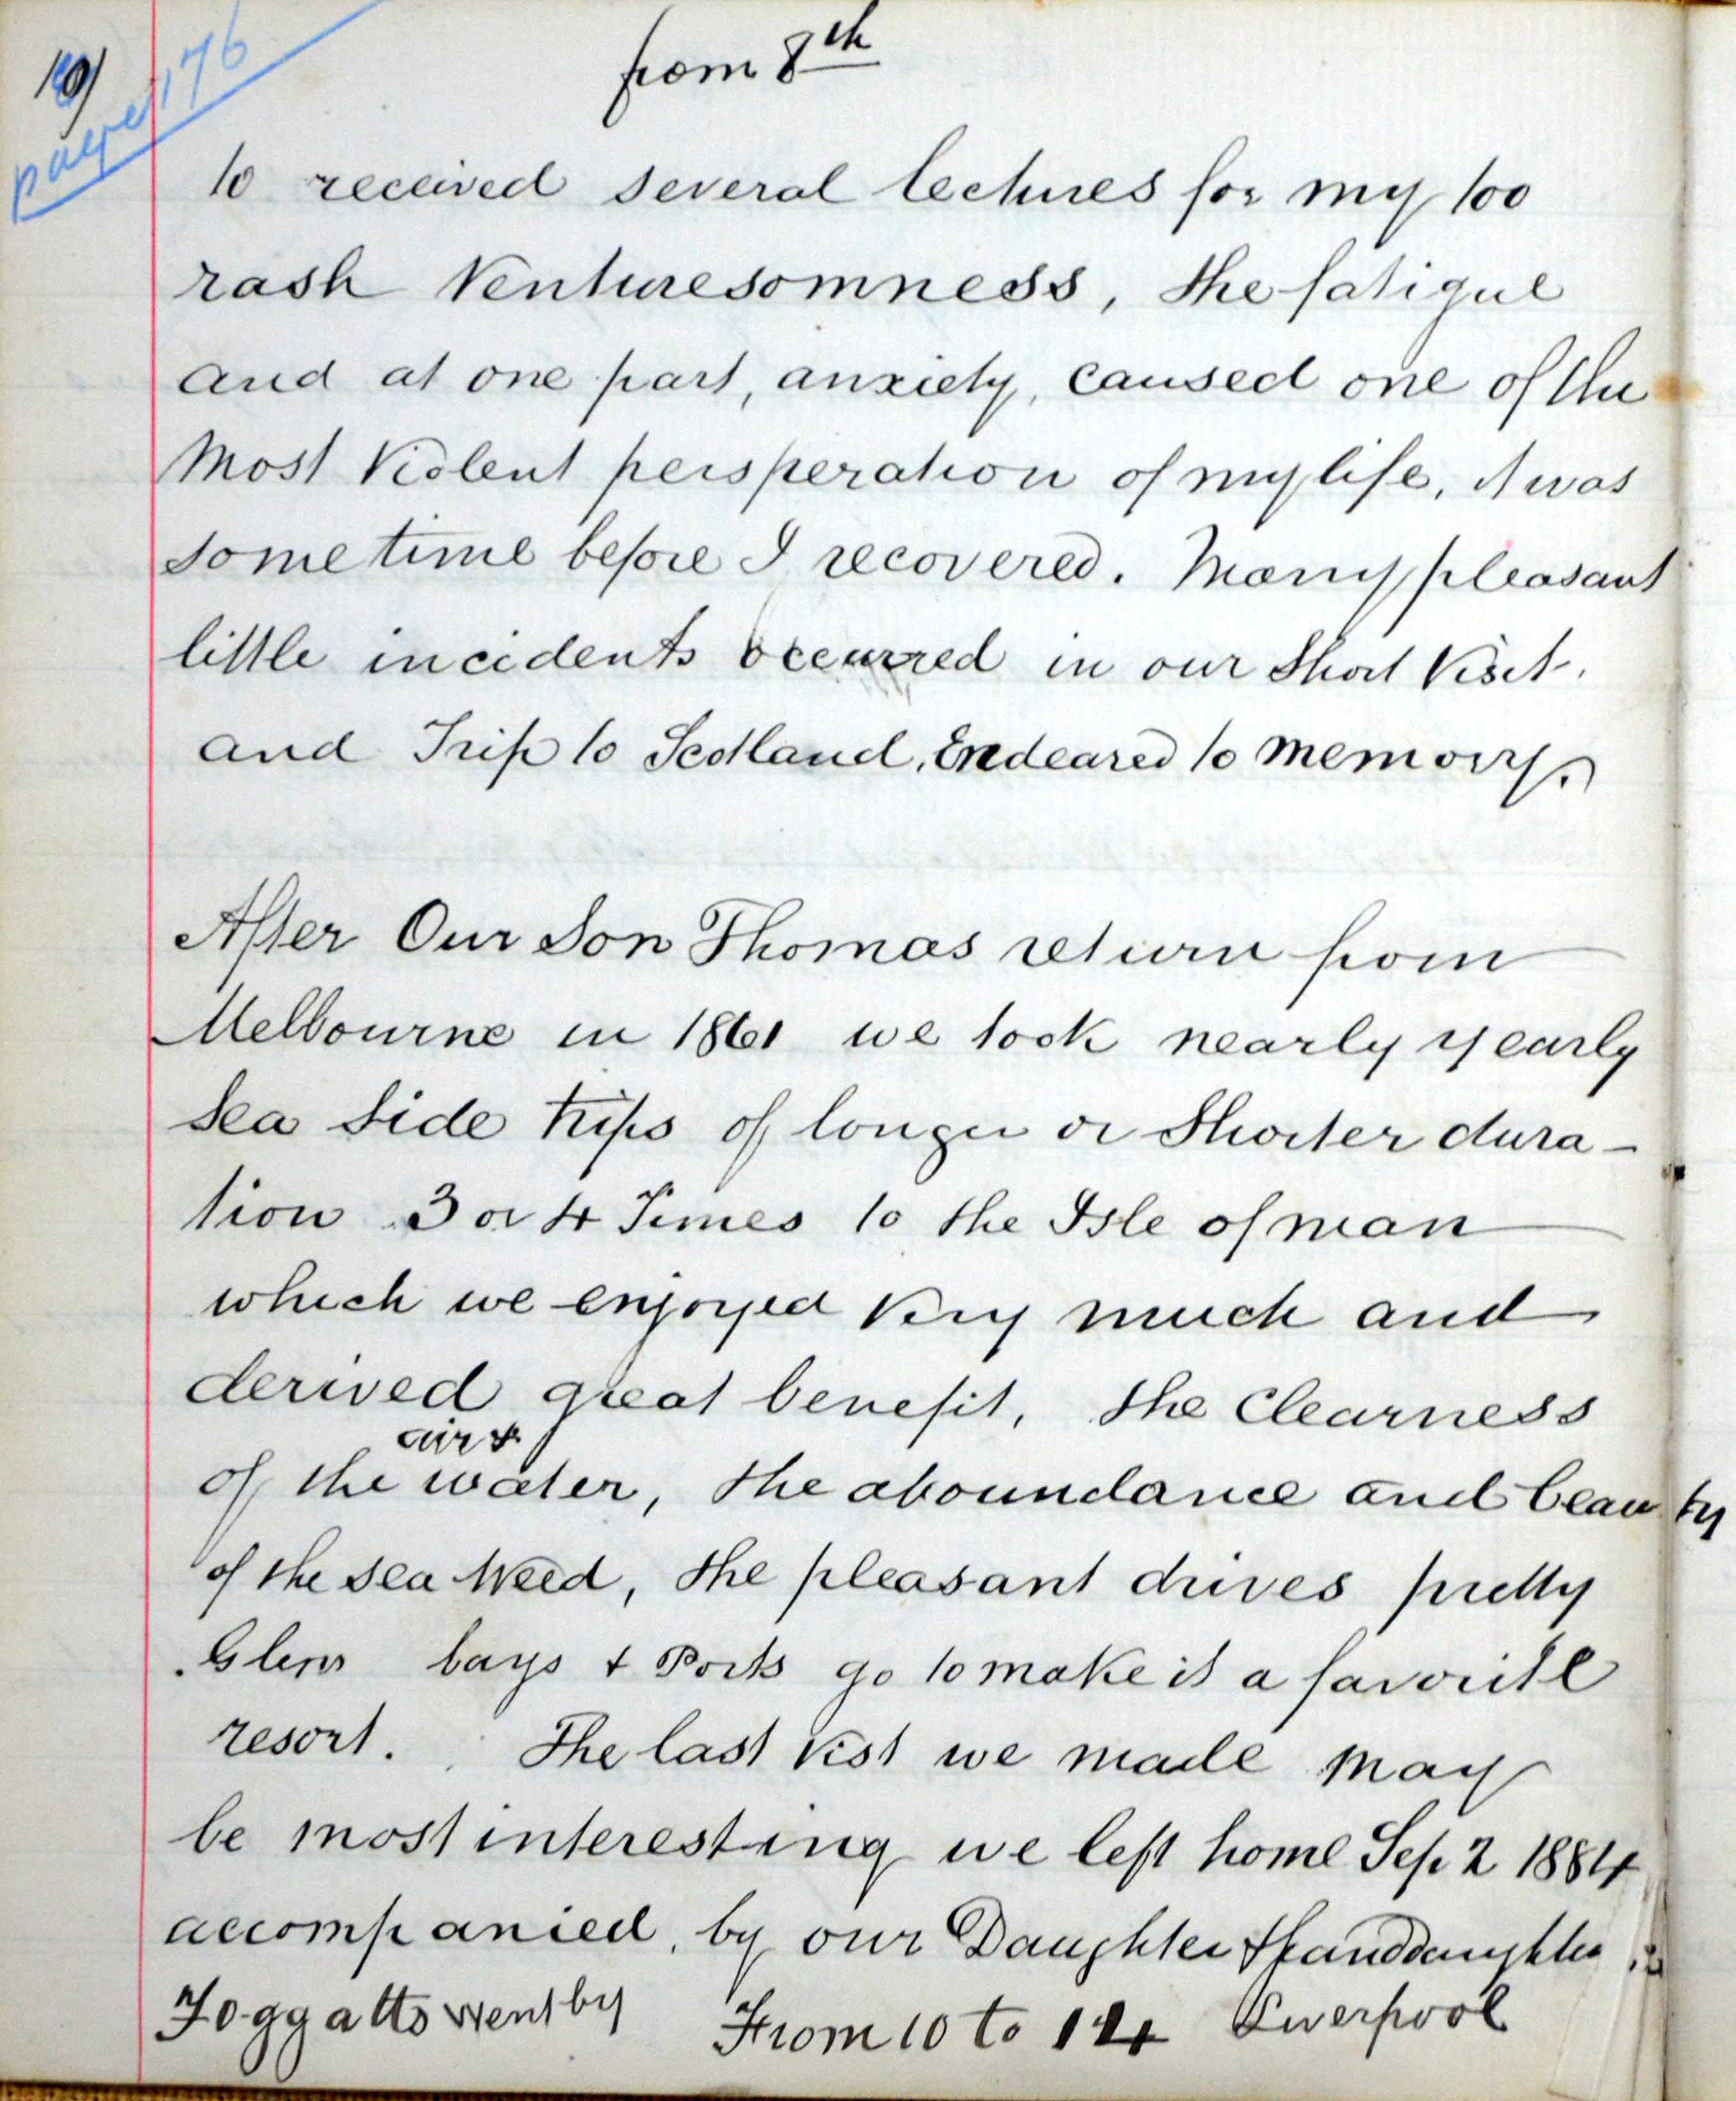 from 8th
10) page 176
to received several lectures for my too
rash Venturesomness, the fatigue
and at one part, anxiety, caused one of the
Most Violent persperation of my life, it was
some time before I recovered. Many pleasant
little incidents occurred in our Short Visit.
and Trip to Scotland, Endeared to memory.
After Our Son Thomas return from
Melbourne in 1861 we took nearly yearly
Sea Side trips of longer or Shorter dura-
tion 3 or 4 Times to the Isle of man
which we enjoyed Very much and
derived great benefit, the Clearness
air &
of the water, the aboundance and beauty
of the sea Weed, the pleasant drives pretty
Glens bays & Ports go to make it a favorite
resort. The last vist we made may
be most interesting we left home Sep. 2 1884
accompanied, by our Daughter &
Foggatts went by From 10 to 14 Liverpool